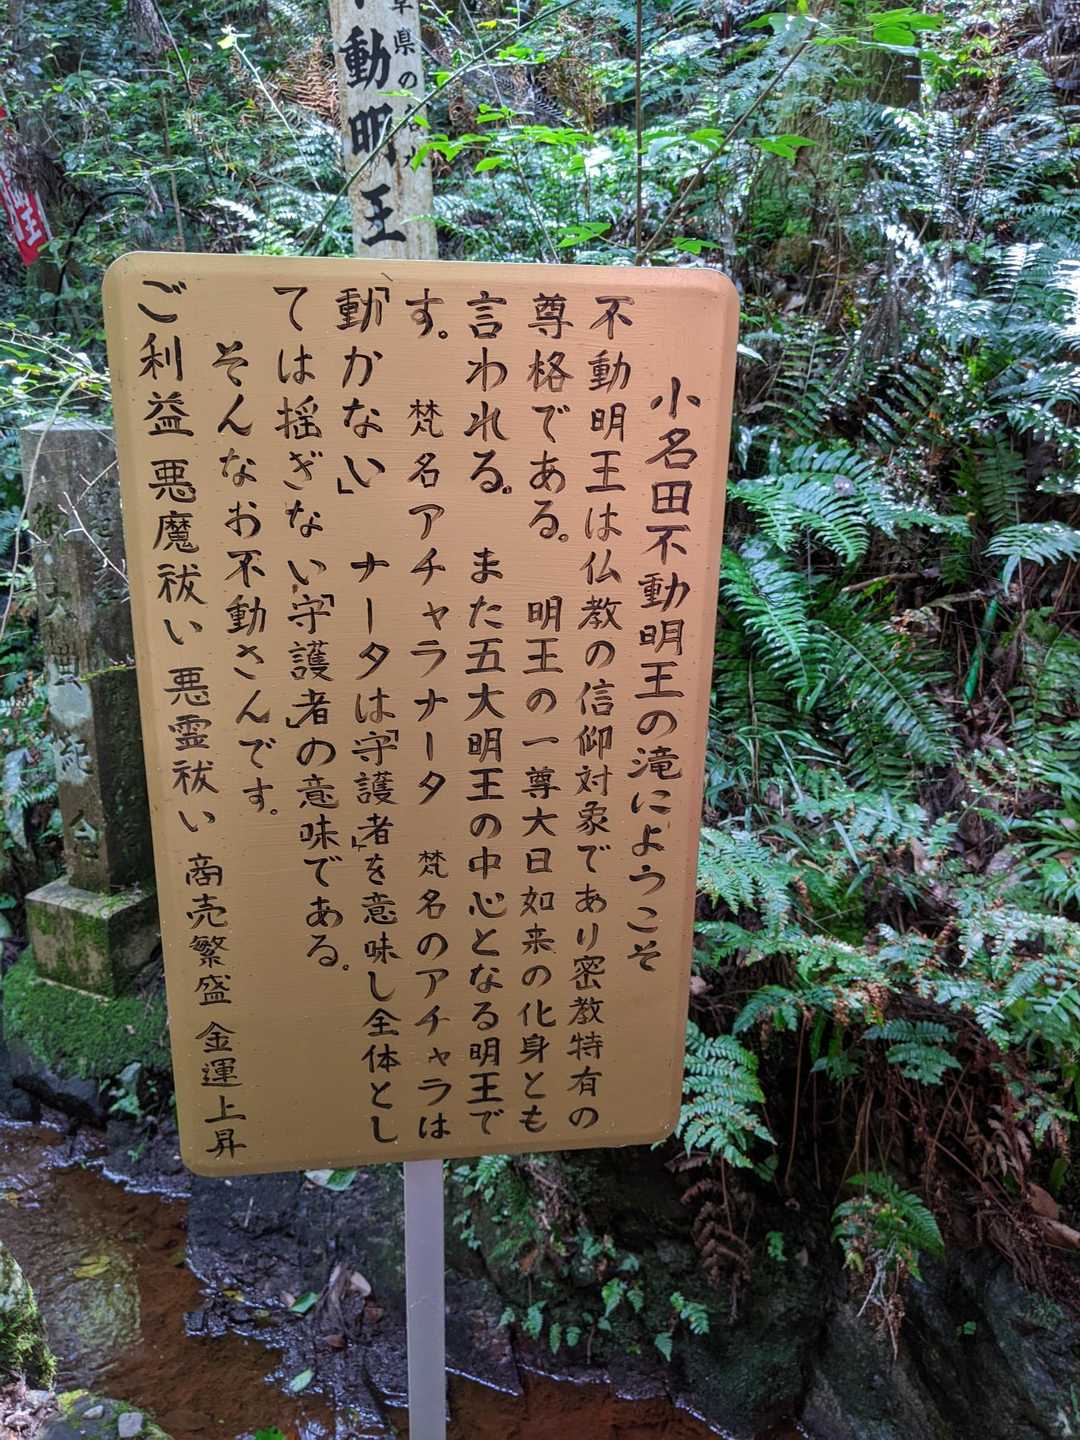 小名田不動明王の滝にようこそ
不動明王は仏教の信仰対象であり密教特有の
尊格である。 明王の一尊大日如来の化身とも
言われる。 また五大明王の中心となる明王で
す。 梵名アチャラナータ 梵名のアチャラは
「動かない」 ナータは「守護者」を意味し全体とし
ては揺ぎない「守護者」の意味である。
そんなお不動さんです。
ご利益 悪魔祓い 悪霊祓い 商売繁盛 金運上昇
県の名水
不動明王